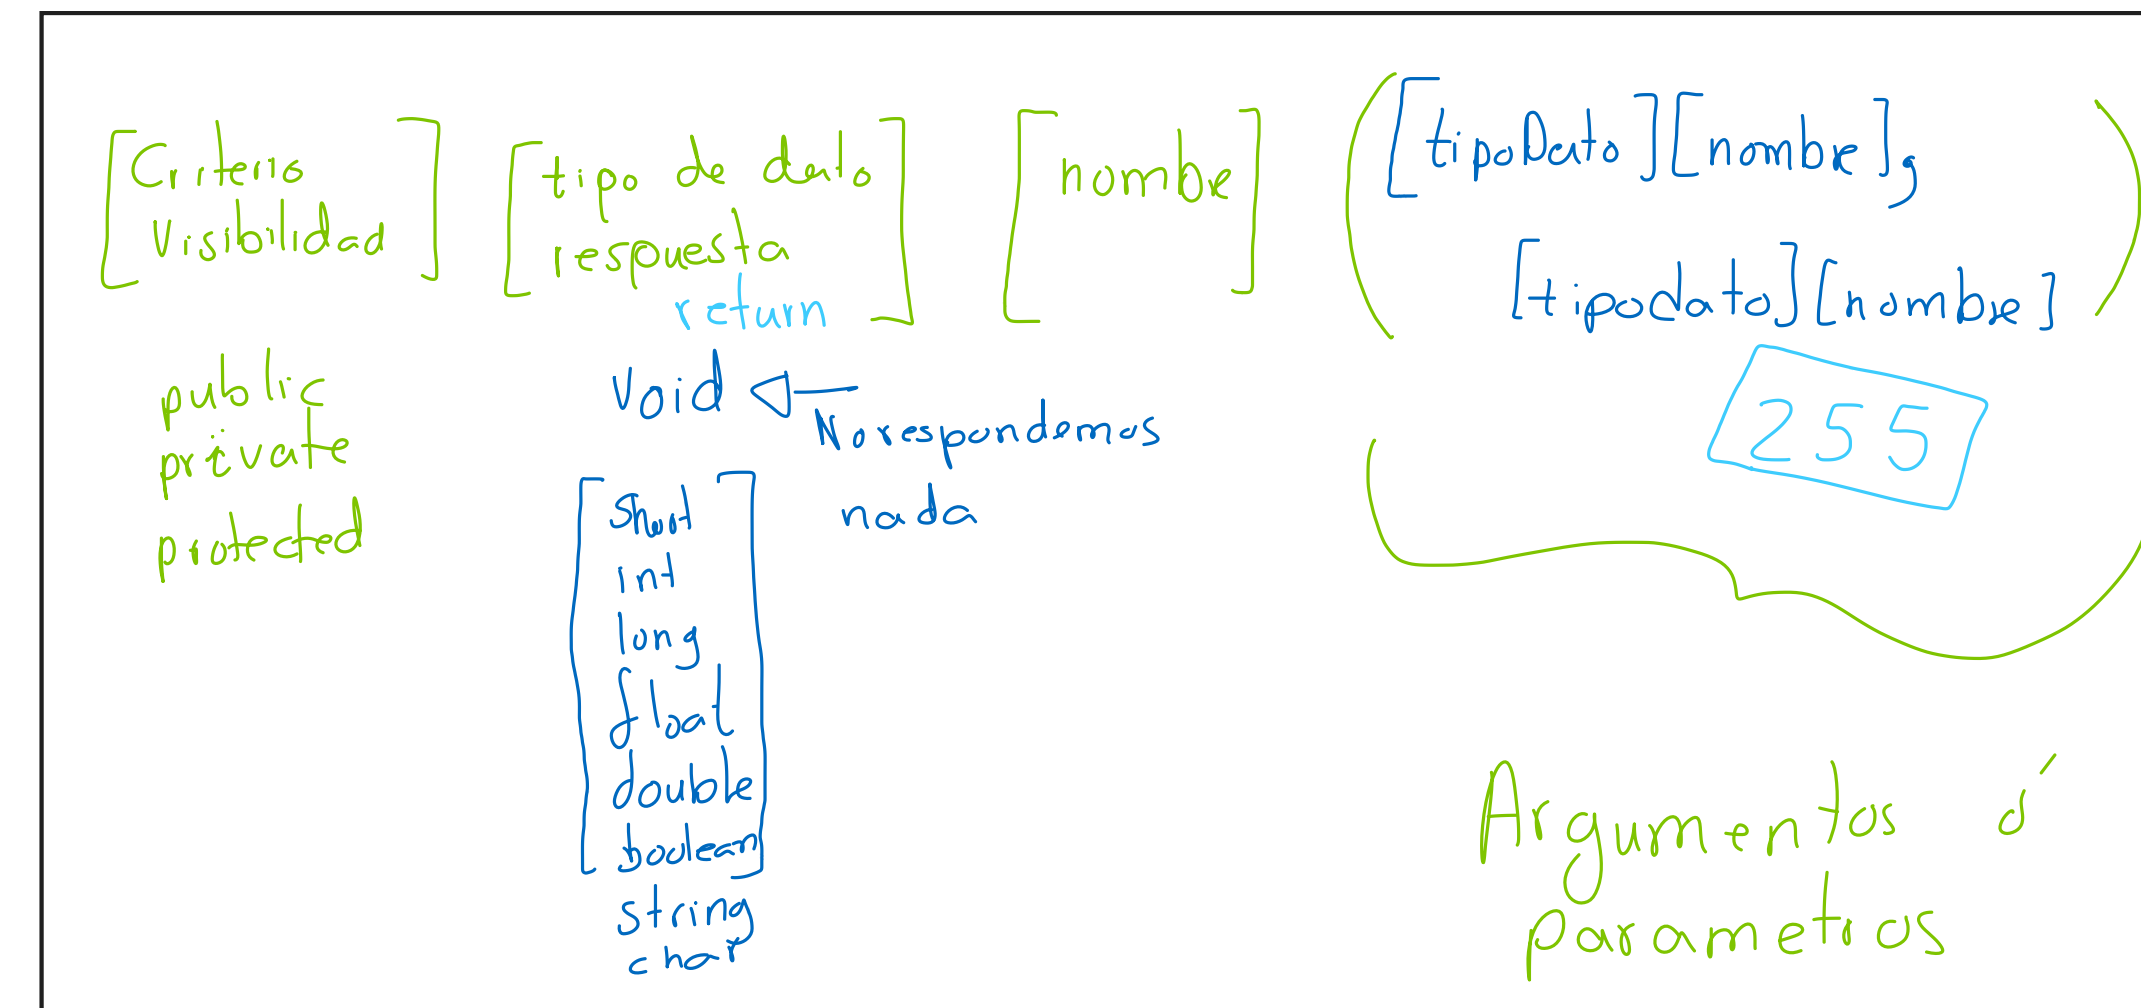 [Criterio Visibilidad] [tipo de dato respuesta return] [nombre] ([tipoDato][nombre],
[tipodato][nombre])
public
private
protected
void ← No respondemos
nada
255
[short
int
long
float
double
boolean]
string
char
Argumentos ó
parametros